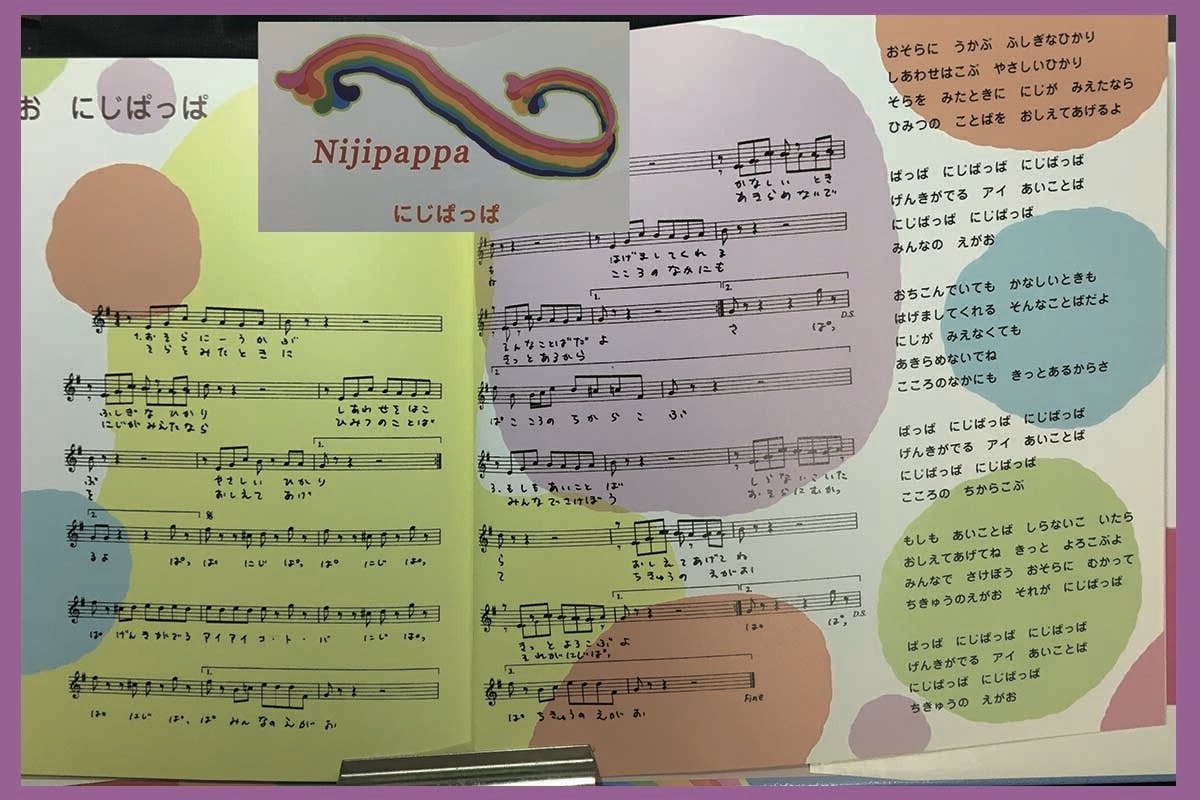 お にじぱっぱ
Nijipappa
にじぱっぱ
1. おそらに ー うかぶ
そらをみたときに
ふしぎな ひかり
しあわせをはこ
にじが みえたなら
ひみつのことば
ぶ
やさしい ひかり
を
おしえて あげ
1.
2.
るよ
ぱっ ぱ にじ ぱっ ぱ にじ ぱっ
ぱ げんきがでる アイアイコ・ト・バ にじ ぱっ
1.
ぱ にじ ぱっ ぱ みんなのえがお
かなしい とき
あきらめないで
はげましてくれる
こころのなかにも
1.
2.
D.S.
そんなことばだ よ
さ ぱっ
きっとあるから
2.
ぱ こころの ちからこぶ
3. もしもあいことば
しらないこ いた
みんなでさけぼう
おそらにむかっ
ら
おしえてあげてね
て
ちきゅうの えがお
1.
2.
D.S.
きっとよろこぶよ
ぱ ぱっ
それがにじぱっ
3.
ぱ ちきゅうの えがお
Fine
おそらに うかぶ ふしぎなひかり
しあわせはこぶ やさしいひかり
そらを みたときに にじが みえたなら
ひみつの ことばを おしえてあげるよ
ぱっぱ にじぱっぱ にじぱっぱ
げんきがでる アイ あいことば
にじぱっぱ にじぱっぱ
みんなの えがお
おちこんでいても かなしいときも
はげましてくれる そんなことばだよ
にじが みえなくても
あきらめないでね
こころのなかにも きっとあるからさ
ぱっぱ にじぱっぱ にじぱっぱ
げんきがでる アイ あいことば
にじぱっぱ にじぱっぱ
こころの ちからこぶ
もしも あいことば しらないこ いたら
おしえてあげてね きっと よろこぶよ
みんなで さけぼう おそらに むかって
ちきゅうのえがお それが にじぱっぱ
ぱっぱ にじぱっぱ にじぱっぱ
げんきがでる アイ あいことば
にじぱっぱ にじぱっぱ
ちきゅうの えがお